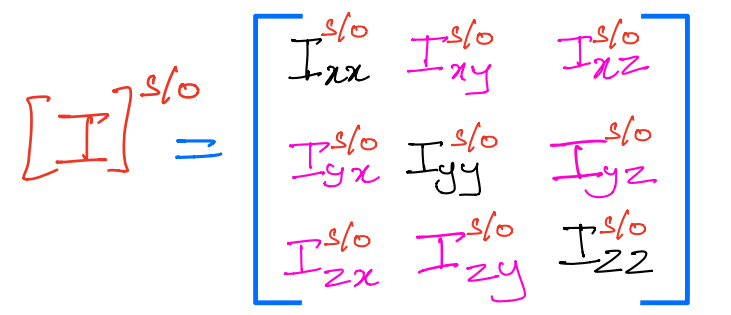 I_{xx}^{S/O} I_{xy}^{S/O} I_{xz}^{S/O}
[I]^{S/O} = I_{yx}^{S/O} I_{yy}^{S/O} I_{yz}^{S/O}
I_{zx}^{S/O} I_{zy}^{S/O} I_{zz}^{S/O}